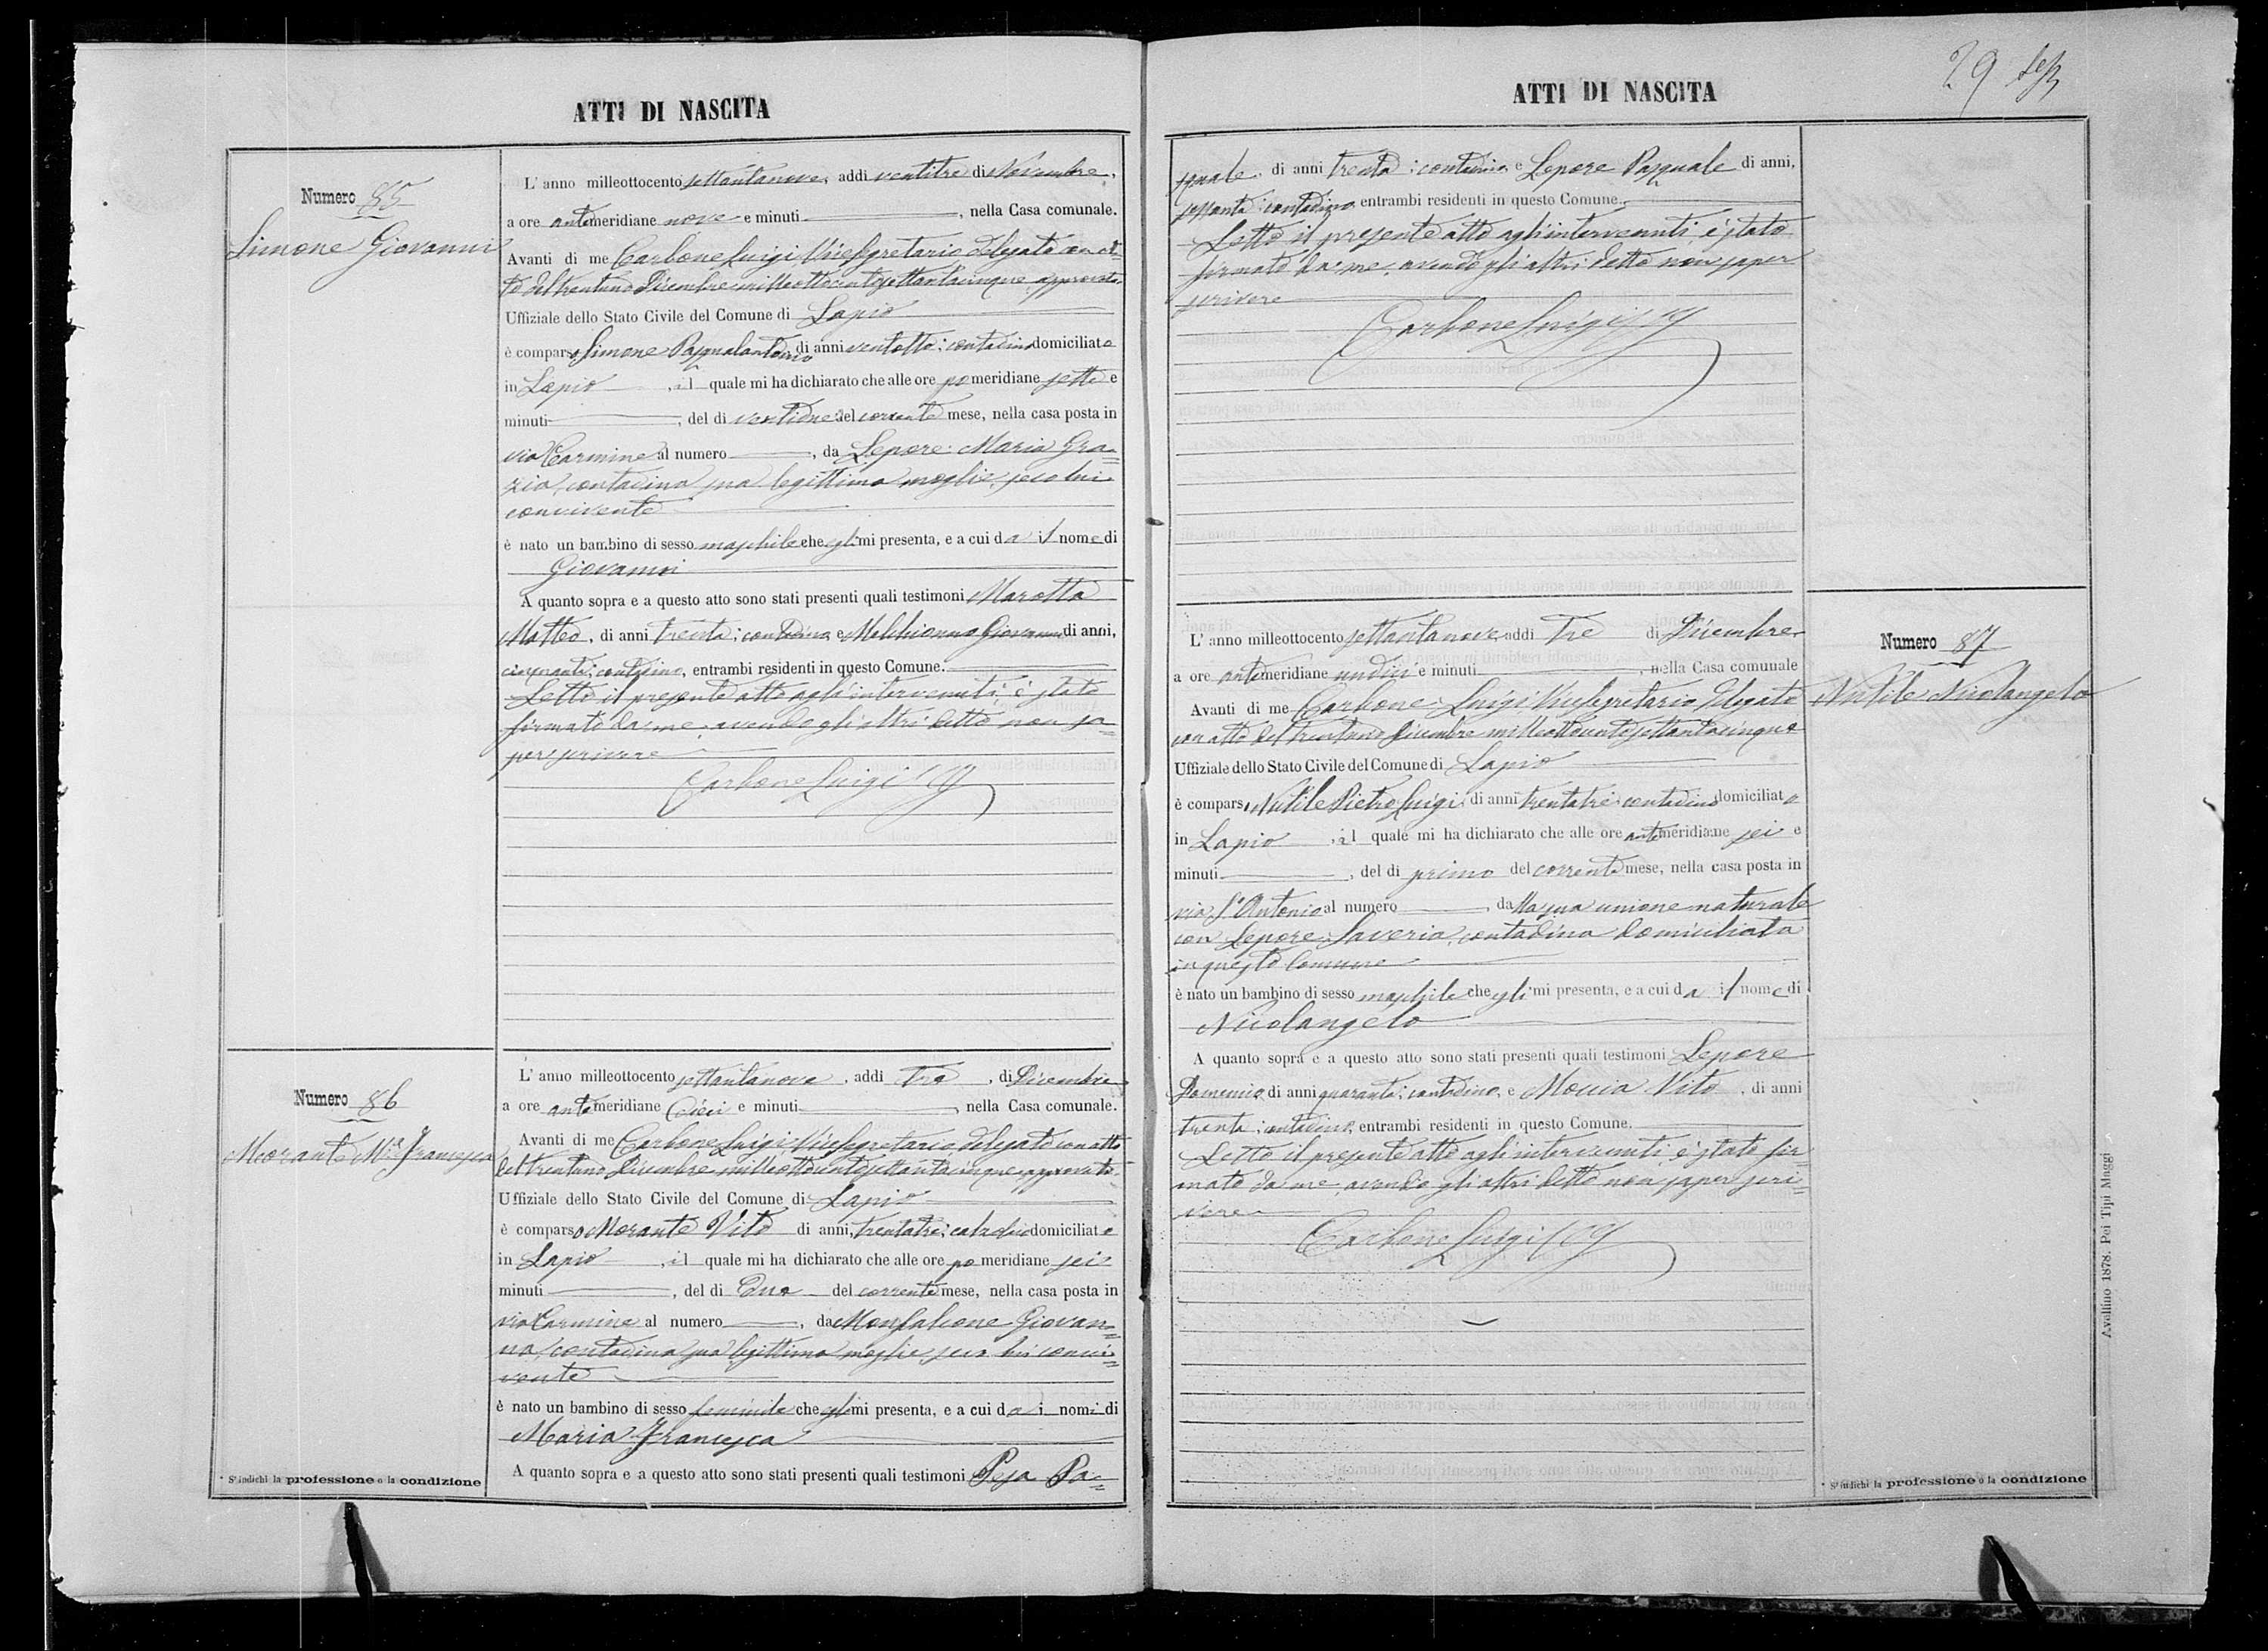 ATTI DI NASCITA
Numero 85
Simone Giovanni
L' anno milleottocento settantanove, addi ventitre di Novembre,
a ore antimeridiane nove e minuti, nella Casa comunale.
Avanti di me Carbone Luigi Vicesegretario delegato con at-
to del trentuno Dicembre milleottocentosettantacinque approvato
Uffiziale dello Stato Civile del Comune di Lapio
è comparso Simone Pasqualantonio di anni ventotto; contadino domiciliato
in Lapio, il quale mi ha dichiarato che alle ore pomeridiane sette e
minuti, del di ventidue del corrente mese, nella casa posta in
via Carmine al numero, da Lepore Maria Gra=
zia, contadina sua legittima moglie, seco lui
convivente
è nato un bambino di sesso maschile che egli mi presenta, e a cui dà il nome di
Giovanni
A quanto sopra e a questo atto sono stati presenti quali testimoni Marotta
Matteo, di anni trenta; contadino e Melchionno Giovanni di anni,
cinquanta; contadino, entrambi residenti in questo Comune.
Letto il presente atto agli intervenuti, è stato
firmato da me, avendo gli altri detto non sa=
per scrivere
Carbone Luigi
Numero 86
Morante Mª Francesca
L' anno milleottocento settantanove, addi tre, di Dicembre
a ore antimeridiane dieci e minuti, nella Casa comunale.
Avanti di me Carbone Luigi Vicesegretario delegato con atto
del trentuno Dicembre milleottocentosettantacinque approvato
Uffiziale dello Stato Civile del Comune di Lapio
è comparso Morante Vito di anni, trentatre; domiciliato
in Lapio, il quale mi ha dichiarato che alle ore pomeridiane sei e
minuti, del di due del corrente mese, nella casa posta in
via Carmine al numero, da Monfalcone Giovan=
na, contadina sua legittima moglie, seco lui convi=
vente
è nato un bambino di sesso feminile che egli mi presenta, e a cui dà i nomi di
Maria Francesca
A quanto sopra e a questo atto sono stati presenti quali testimoni Pesa Pa=
* S' indichi la professione o la condizione
ATTI DI NASCITA
squale, di anni trenta; contadino e Lepore Pasquale di anni,
sessanta; contadino, entrambi residenti in questo Comune.
Letto il presente atto agli intervenuti, è stato
firmato da me, avendo gli altri detto non saper
scrivere
Carbone Luigi
L' anno milleottocento settantanove, addi tre di Dicembre
a ore antimeridiane undici e minuti, nella Casa comunale
Avanti di me Carbone Luigi Vicesegretario delegato
con atto del trentuno Dicembre milleottocentosettantacinque
Uffiziale dello Stato Civile del Comune di Lapio
è comparso Nutile Pietro Luigi, di anni trentatre; contadino domiciliato
in Lapio, il quale mi ha dichiarato che alle ore antimeridiane sei e
minuti, del di primo del corrente mese, nella casa posta in
via S. Antonio al numero, dalla sua unione naturale
con Lepore Saveria, contadina domiciliata
in questo Comune
è nato un bambino di sesso maschile che egli mi presenta, e a cui dà il nome di
Nicolangelo
A quanto sopra e a questo atto sono stati presenti quali testimoni Lepore
Domenico, di anni quaranta; contadino, e Moccia Vito, di anni
trenta; contadino, entrambi residenti in questo Comune.
Letto il presente atto agli intervenuti, è stato fir-
mato da me, avendo gli altri detto non saper scri-
vere
Carbone Luigi
Numero 87
Nutile Nicolangelo
* S' indichi la professione o la condizione
Avallino 1878. Pei Tipi Maggi